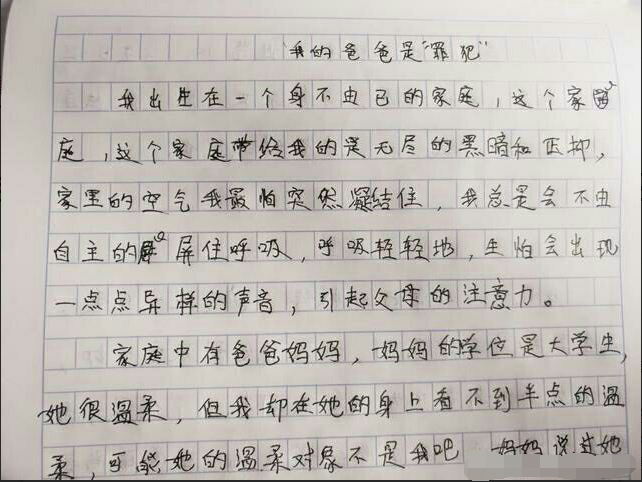 我的爸爸是“罪犯”
我出生在一个身不由己的家庭，这个家
庭，这个家庭带给我的是无尽的黑暗和压抑，
家里的空气我最怕突然凝结住，我总是会不由
自主的屏住呼吸，呼吸轻轻地，生怕会出现
一点点异样的声音，引起父母的注意力。
家庭中有爸爸妈妈，妈妈的学位是大学生，
她很温柔，但我却在她的身上看不到半点的温
柔，可能她的温柔对象不是我吧 妈妈说过她